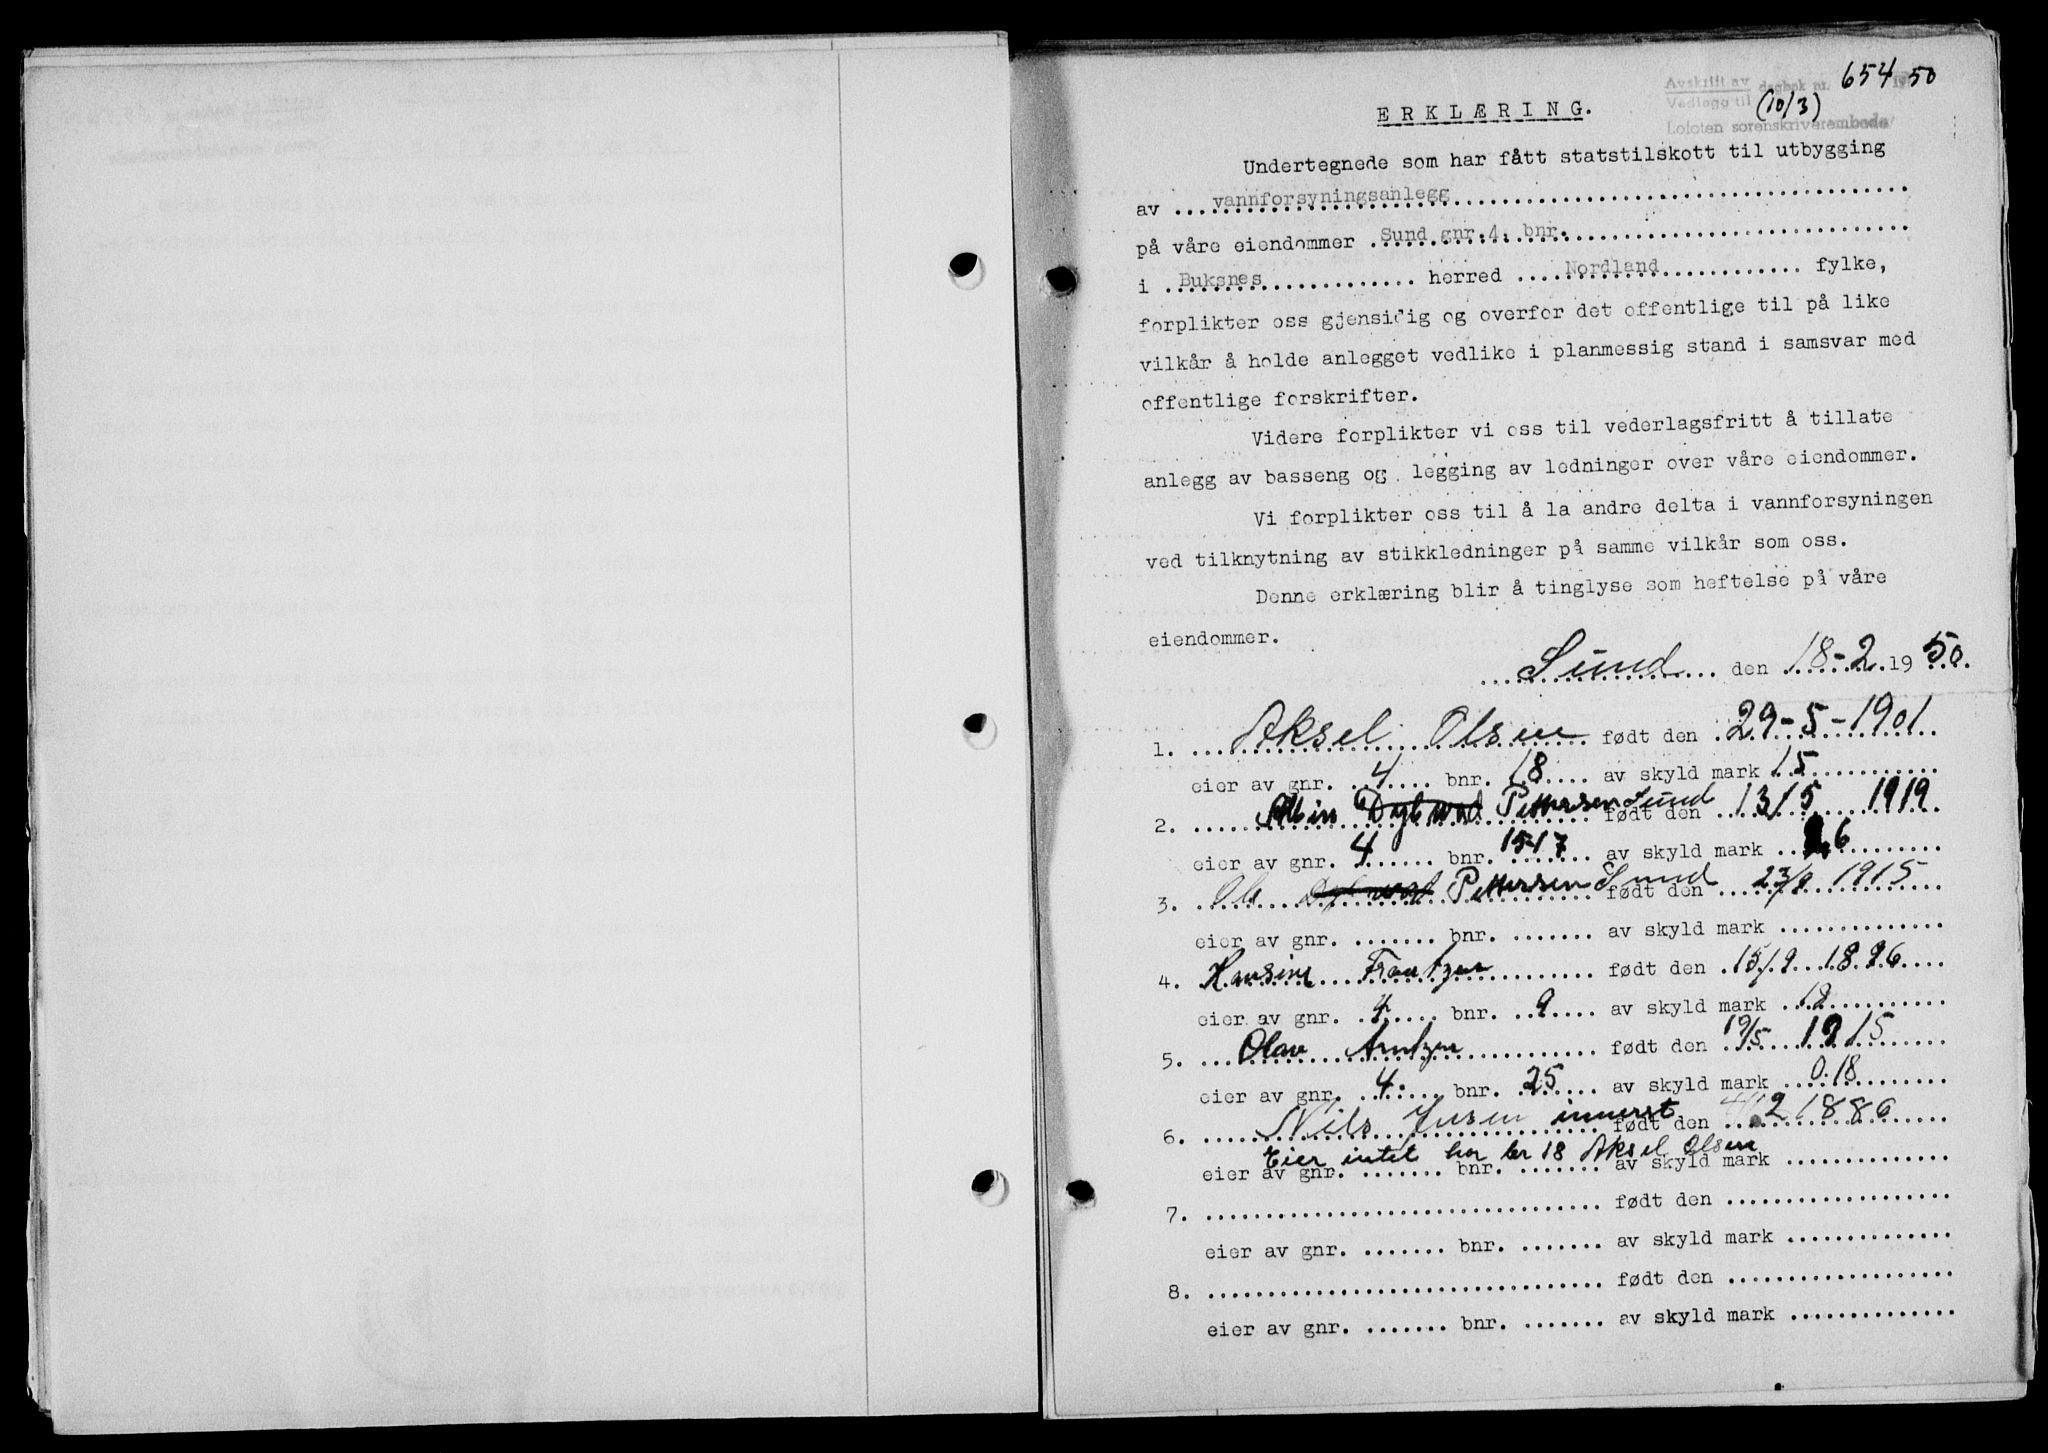 Avskrift av
Vedlegg til dagbok nr. 654 1950
(10/3)
Lofoten sorenskriverembede
ERKLÆRING.
Undertegnede som har fått statstilskott til utbygging
av ... vannforsyningsanlegg
på våre eiendommer ... Sund gnr. 4, bnr.
i ... Buksnes ... herred ... Nordland ... fylke,
forplikter oss gjensidig og overfor det offentlige til på like
vilkår å holde anlegget vedlike i planmessig stand i samsvar med
offentlige forskrifter.
Videre forplikter vi oss til vederlagsfritt å tillate
anlegg av basseng og legging av ledninger over våre eiendommer.
Vi forplikter oss til å la andre delta i vannforsyningen
ved tilknytning av stikkledninger på samme vilkår som oss.
Denne erklæring blir å tinglyse som heftelse på våre
eiendommer.
Sund den 18-2 1950.
1. Aksel Olsen født den 29-5-1901
eier av gnr. 4 bnr. 18 av skyld mark 15
2. Albin Pettersen Sund født den 13/5 1919
eier av gnr. 4 bnr. 1547 av skyld mark 26
3. Ole Pettersen Sund født den 23/9 1915
eier av gnr. ....... bnr. ....... av skyld mark ..............
4. Hansine Frantzen født den 15/9 1896
eier av gnr. 4 bnr. 9 av skyld mark 12
5. Olav Arntzen født den 19/5 1915
eier av gnr. 4. bnr. 25 av skyld mark 0.18
6. Nils Jensen innerst født den 4/12 1886
Eier intet har br 18 Aksel Olsen
eier av gnr. ....... bnr. ....... av skyld mark ..............
7. ................................. født den ...................
eier av gnr. ....... bnr. ....... av skyld mark ..............
8. ................................. født den ...................
eier av gnr. ....... bnr. ....... av skyld mark ..............